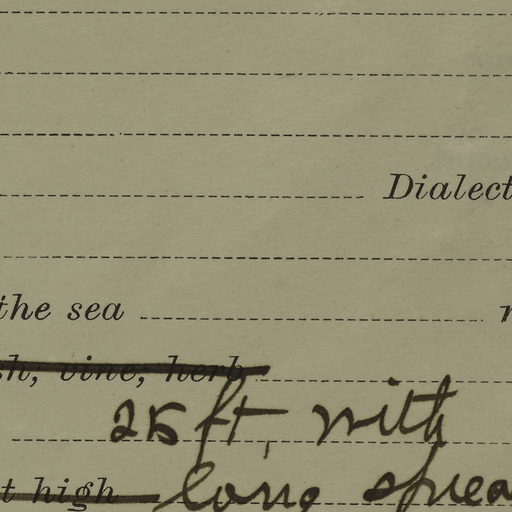 Dialect
the sea
h, vine, herb
25 ft, with
t high long sprea